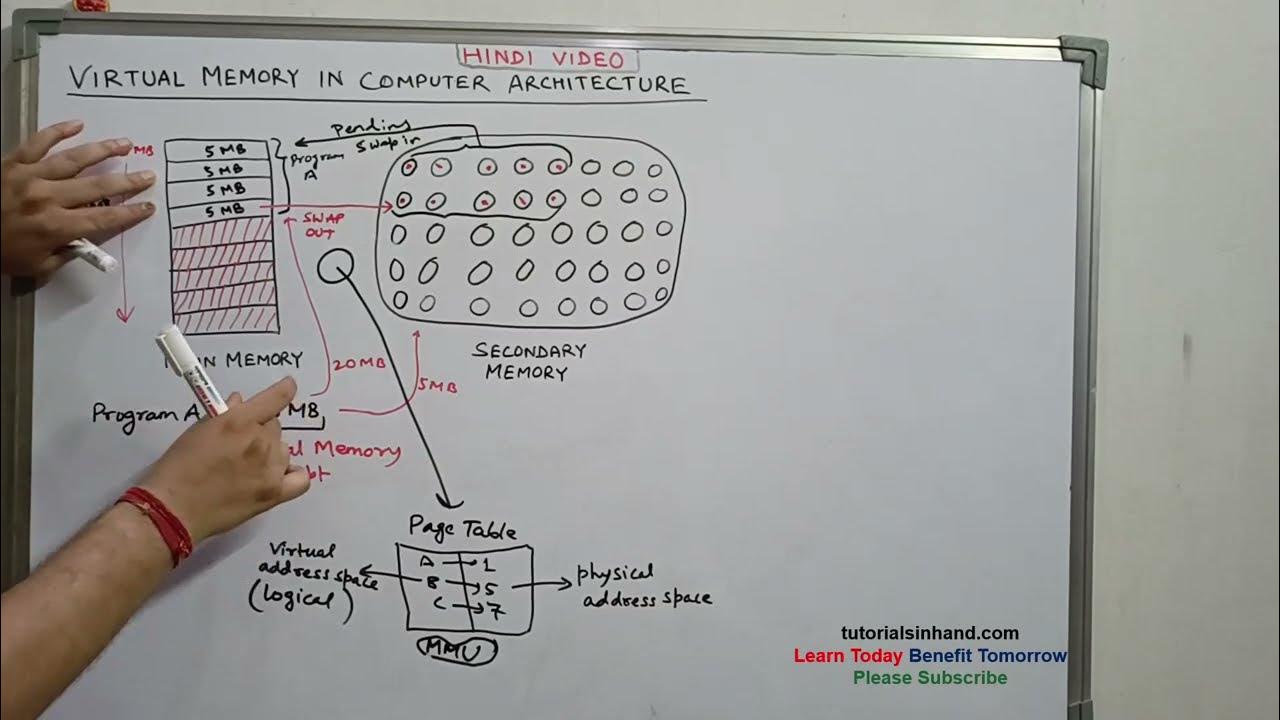 HINDI VIDEO
VIRTUAL MEMORY IN COMPUTER ARCHITECTURE
pending
swap in
MB
5 MB
5 MB
5 MB
5 MB
Program
A
SWAP
OUT
MEMORY
20MB
5MB
SECONDARY
MEMORY
Program A
MB
Memory
Page Table
A 1
B 5
C 7
MMU
Virtual
address space
(logical)
physical
address space
tutorialsinhand.com
Learn Today Benefit Tomorrow
Please Subscribe